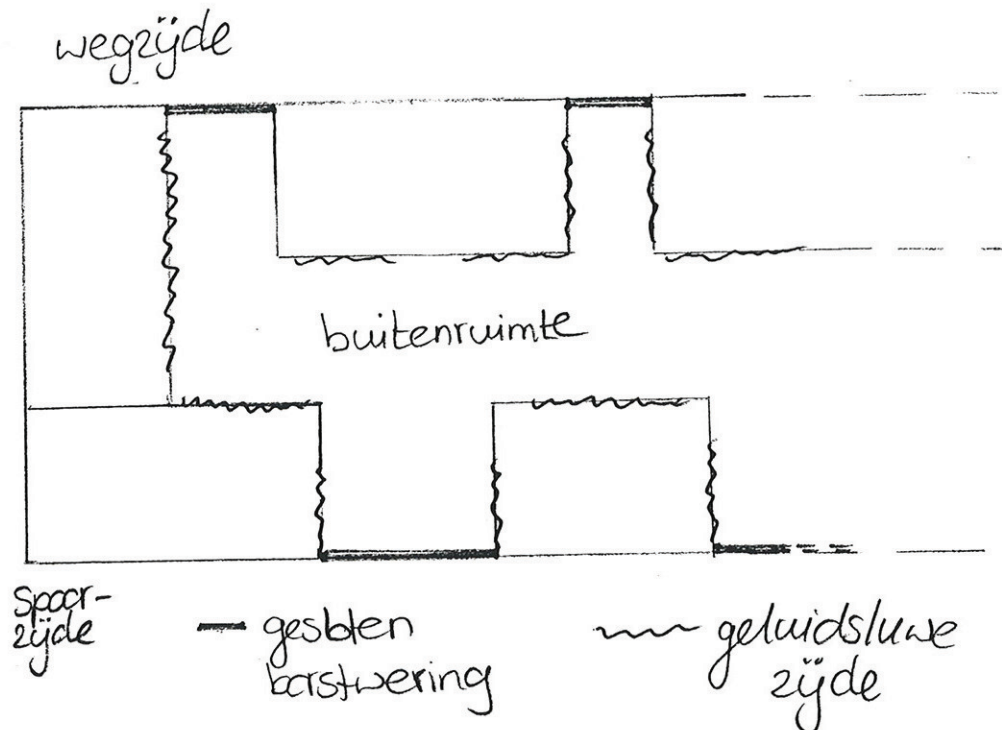 wegzijde
buitenruimte
Spoor-
zijde
gesloten
borstwering
geluidsluwe
zijde